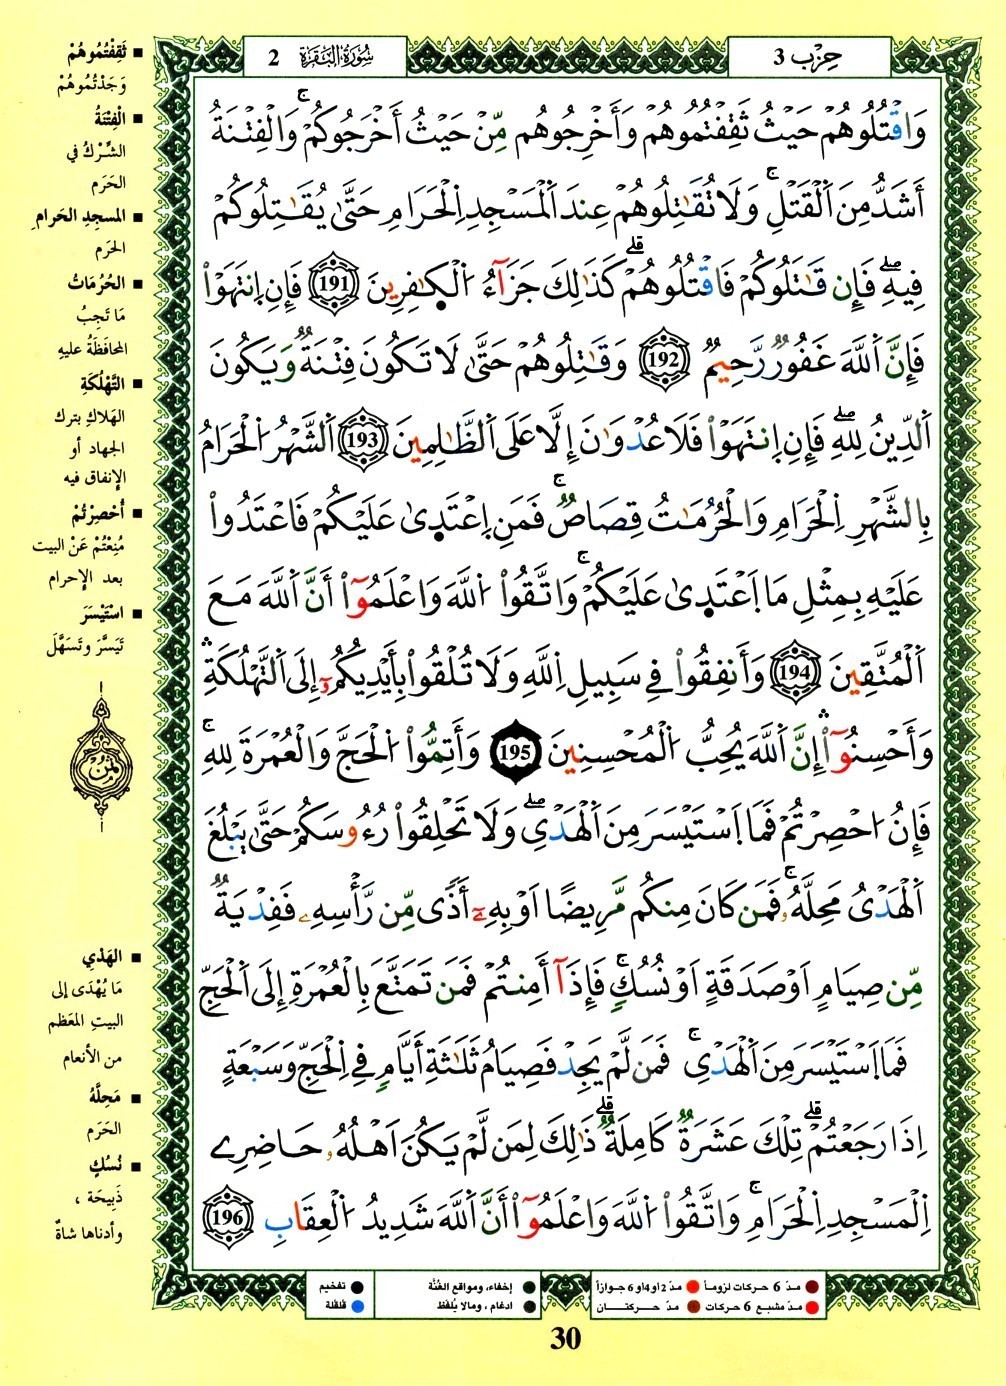 حِزْب 3
سُورَةُ البَقَرَةِ 2
وَاقْتُلُوهُمْ حَيْثُ ثَقِفْتُمُوهُمْ وَأَخْرِجُوهُم مِّنْ حَيْثُ أَخْرَجُوكُمْ وَالْفِتْنَةُ
أَشَدُّ مِنَ اَلْقَتْلِ وَلَا تُقَٰتِلُوهُمْ عِندَ اَلْمَسْجِدِ اِلْحَرَامِ حَتَّىٰ يُقَٰتِلُوكُمْ
فِيهِ فَإِن قَٰتَلُوكُمْ فَاقْتُلُوهُمْ كَذَٰلِكَ جَزَآءُ اُلْكٰفِرِينَ 191 فَإِنِ اِنتَهَوْاْ
فَإِنَّ اَللَّهَ غَفُورٌ رَّحِيمٌ 192 وَقَٰتِلُوهُمْ حَتَّىٰ لَا تَكُونَ فِتْنَةٌ وَيَكُونَ
اَلدِّينُ لِلهِ فَإِنِ اِنتَهَوْاْ فَلَا عُدْوَٰنَ إِلَّا عَلَى اَلظَّٰلِمِينَ 193 اَلشَّهْرُ اُلْحَرَامُ
بِالشَّهْرِ اِلْحَرَامِ وَالْحُرُمَٰتُ قِصَاصٌ فَمَنِ اِعْتَدِىٰ عَلَيْكُمْ فَاعْتَدُواْ
عَلَيْهِ بِمِثْلِ مَا اَعْتَدِىٰ عَلَيْكُمْ وَاتَّقُواْ اُللَّهَ وَاعْلَمُوٓاْ أَنَّ اَللَّهَ مَعَ
اَلْمُتَّقِينَ 194 وَأَنفِقُواْ فِي سَبِيلِ اِللَّهِ وَلَا تُلْقُواْ بِأَيْدِيكُمُۥٓ إِلَى اَلتَّهْلُكَةِ
وَأَحْسِنُوٓاْ إِنَّ اَللَّهَ يُحِبُّ اُلْمُحْسِنِينَ 195 وَأَتِمُّواْ اُلْحَجَّ وَالْعُمْرَةَ لِلهِ
فَإِنُ احْصِرْتُمْ فَمَا اَسْتَيْسَرَ مِنَ اَلْهَدْيِ وَلَا تَحْلِقُواْ رُءُوسَكُمْ حَتَّىٰ يَبْلُغَ
اَلْهَدْيُ مَحِلَّهُۥ فَمَن كَانَ مِنكُم مَّرِيضًا اَوْ بِهِۦٓ أَذًى مِّن رَّأْسِهِۦ فَفِدْيَةٌ
مِّن صِيَامٍ اَوْ صَدَقَةٍ اَوْ نُسُكٍ فَإِذَآ أَمِنتُمْ فَمَن تَمَتَّعَ بِالْعُمْرَةِ إِلَى اَلْحَجِّ
فَمَا اَسْتَيْسَرَ مِنَ اَلْهَدْيِ فَمَن لَّمْ يَجِدْ فَصِيَامُ ثَلَٰثَةِ أَيَّامٍ فِي اِلْحَجِّ وَسَبْعَةٍ
اِذَا رَجَعْتُمْ تِلْكَ عَشَرَةٌ كَامِلَةٌ ذَٰلِكَ لِمَن لَّمْ يَكُنَ اَهْلُهُۥ حَاضِرِي
اِلْمَسْجِدِ اِلْحَرَامِ وَاتَّقُواْ اُللَّهَ وَاعْلَمُوٓاْ أَنَّ اَللَّهَ شَدِيدُ اُلْعِقَابِ 196
■ ثَقِفْتُمُوهُمْ
وَجَدْتُمُوهُمْ
■ الْفِتْنَةُ
الشِّرْكُ في
الحَرَم
■ المسجِدِ الحَرامِ
الحَرَم
■ الحُرُمَاتُ
مَا تَجِبُ
المحافَظَةُ عليهِ
■ التَّهْلُكَةِ
الهَلاكِ بترك
الجهاد أو
الإنفاق فيه
■ أُحْصِرْتُمْ
مُنِعْتُمْ عَنْ البيت
بعد الإحرام
■ اسْتَيْسَرَ
تَيَسَّرَ وتَسَهَّلَ
ثمن
■ الهَدْيِ
مَا يُهْدَى إلى
البيتِ المعَظم
من الأنعام
■ مَحِلَّهُ
الحَرَم
■ نُسُكٍ
ذَبِيحَة ،
وأدناها شاةٌ
مدّ 6 حركات لزوماً ● مدّ 2 أو 4 أو 6 جوازاً
مدّ مشبع 6 حركات ● مدّ حركتان
إخفاء، ومواقع الغُنَّة
ادغام ، ومالا يُلفظ
تفخيم
قلقلة
30